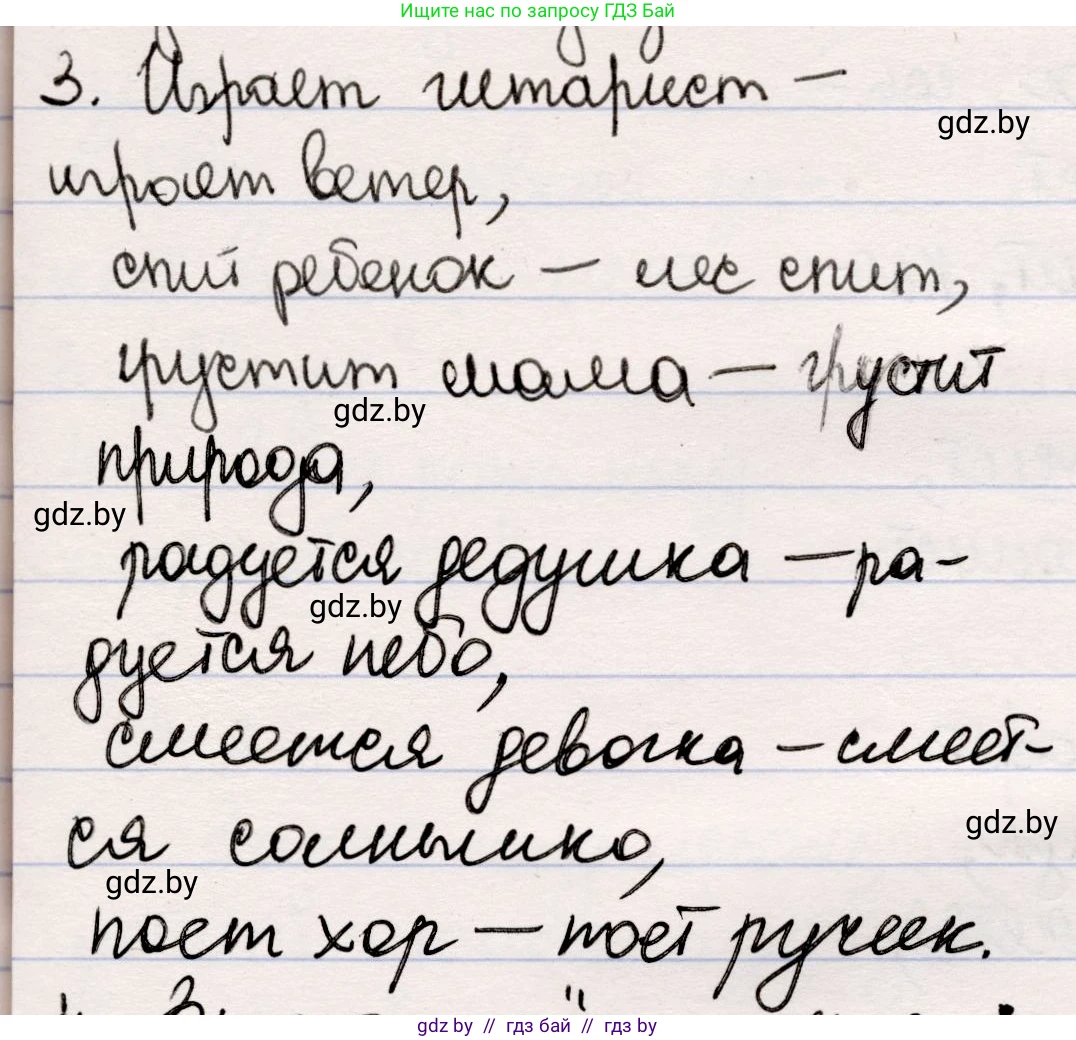 Ищите нас по запросу ГДЗ Бай
3. Играет гитарист –
gdz.by
играет ветер,
спит ребенок – лес спит,
грустит мама – грустит
gdz.by
природа,
gdz.by
радуется дедушка – ра-
gdz.by
дуется небо,
смеется девочка – смеет-
ся солнышко,
gdz.by
gdz.by
поет хор – поёт ручеек.
gdz by // гдз бай // гдз by